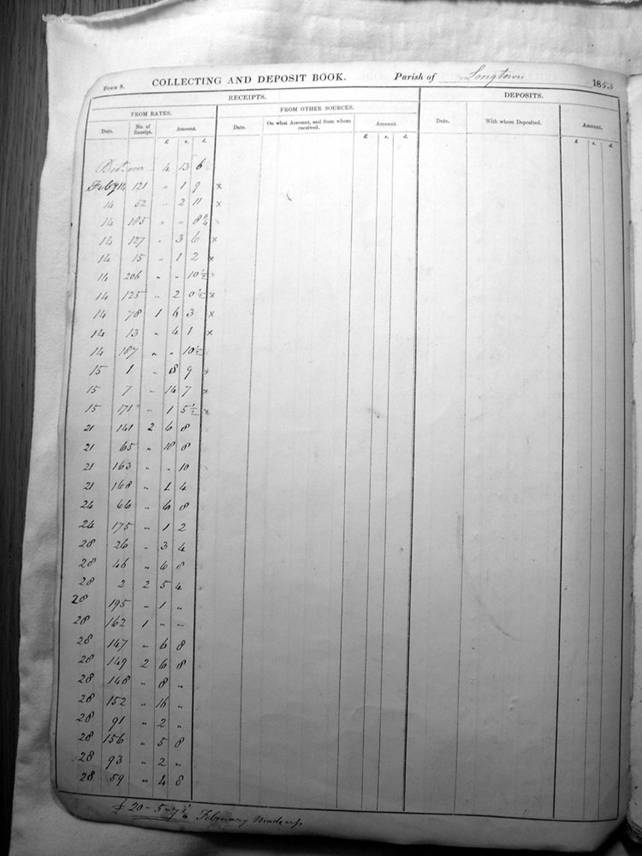 FORM 8. COLLECTING AND DEPOSIT BOOK. Parish of Longtown 1853
RECEIPTS. DEPOSITS.
FROM RATES. FROM OTHER SOURCES.
Date. No. of Receipt. Amount. Date. On what Account, and from whom received. Amount. Date. With whom Deposited. Amount.
£ s. d. £ s. d. £ s. d.
4 13 6
Feby 14 121 " 1 9 x
14 62 " 2 11 x
14 185 " " 8½
14 127 " 3 6 x
14 15 " 1 2 x
14 206 " " 10½
14 125 " 2 0½ x
14 78 1 4 3 x
14 13 " 4 1 x
14 187 " " 10½
15 1 " 18 9 x
15 7 " 14 7 x
15 171 " 1 5½ x
21 141 2 6 8
21 65 " 18 8
21 163 " " 10
21 168 " 1 4
24 66 " 6 8
24 175 " 1 2
28 26 " 3 4
28 46 " 6 8
28 2 2 5 4
28 195 " 1 "
28 162 1 " "
28 147 " 6 8
28 149 2 6 8
28 148 " 8 "
28 152 " 16 "
28 91 " 2 "
28 156 " 5 8
28 93 " 2 "
28 59 " 4 8
£ 20 - 5 February